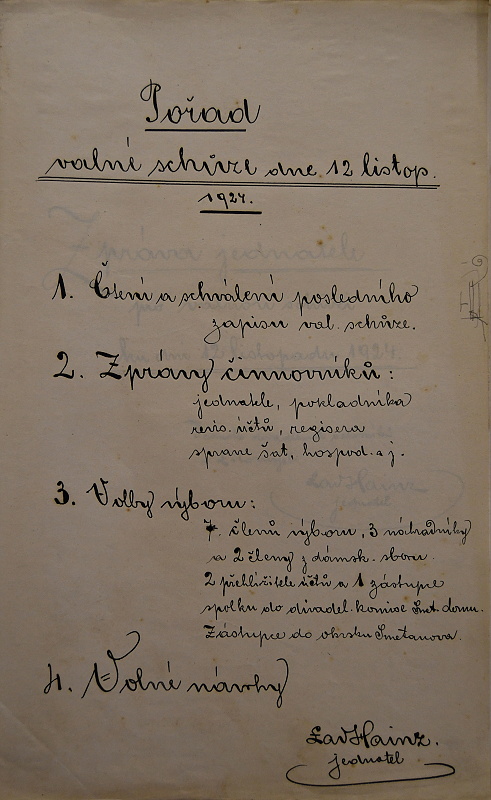 Pořad
valné schůze dne 12 listop.
1924.
1. Čtení a schválení posledního
zápisu val. schůze.
2. Zprávy činovníků:
jednatele, pokladníka
revis. účtů, regisera
správce šat, hospod. a j.
3. Volby výboru:
7. členů výboru, 3 náhradníky
a 2 členy z dámsk. sboru.
2 přehlížitele účtů a 1 zástupce
spolku do divadel. komise Smet. domu.
Zástupce do okrsku Smetanova.
4. Volné návrhy
Lad Hainz.
jednatel